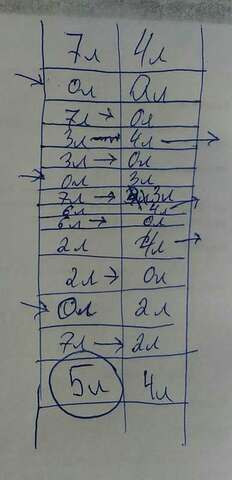 7л 4л
0л 0л
7л → 0л
3л → 4л →
3л → 0л
0л 3л
7л → 3л
6л 4л →
6л → 0л
2л 4л →
2л → 0л
0л 2л
7л → 2л
5л 4л